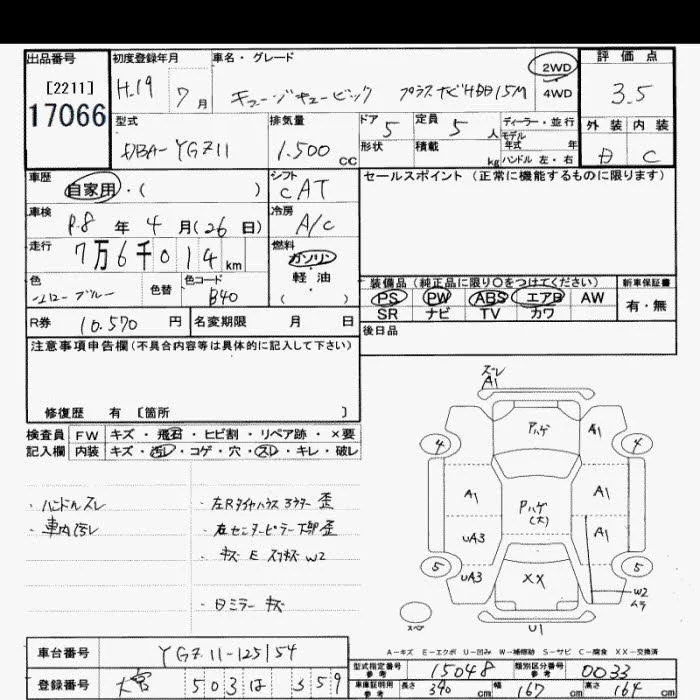 出品番号
[2211]
17066
初度登録年月
H.19 7月
車名・グレード
キューブキュービック プラスナビHDD 15M
2WD
4WD
評価点
3.5
外装 内装
D C
型式
DBA-YGZ11
排気量
1.500 cc
ドア 5
定員 5 人
形状
積載 kg
ディーラー・並行
モデル年式 年
ハンドル 左・右
車歴
自家用・( )
シフト
CAT
車検
R.8 年 4 月(26日)
冷房
A/C
走行
7万6千014 km
燃料
ガソリン
軽油
( )
色
ブルー
色替
色コード
B40
R券 10.570 円
名変期限 月 日
セールスポイント(正常に機能するものに限ります)
装備品(純正品に限り○をつけてください)
PS PW ABS エアB AW
SR ナビ TV カワ
新車保証書
有・無
後日品
注意事項申告欄(不具合内容等は具体的に記入して下さい)
修復歴 有 [箇所 ]
検査員記入欄
FW キズ・飛石・ヒビ割・リペア跡・×要
内装 キズ・汚レ・コゲ・穴・スレ・キレ・破レ
・ハンドルスレ
・車内汚レ
・左Rタイヤハウス 歪
・右センターピラー下部歪
・キズ E スリキズ W2
・日ミラーキズ
スレ
A1
Pハゲ
A1
4
4
A1
Pハゲ
(大)
A1
UA3
A1
5
5
UA3
XX
W2
ムラ
スペア
U1
A-キズ E-エクボ U-凹み W-補修跡 S-サビ C-腐食 XX-交換済
車台番号 YGZ11-125154
登録番号 大宮 503 ほ 359
型式指定番号参考 15048
類別区分番号参考 0033
車庫証明用参考 長さ 390 cm 幅 167 cm 高さ 164 cm